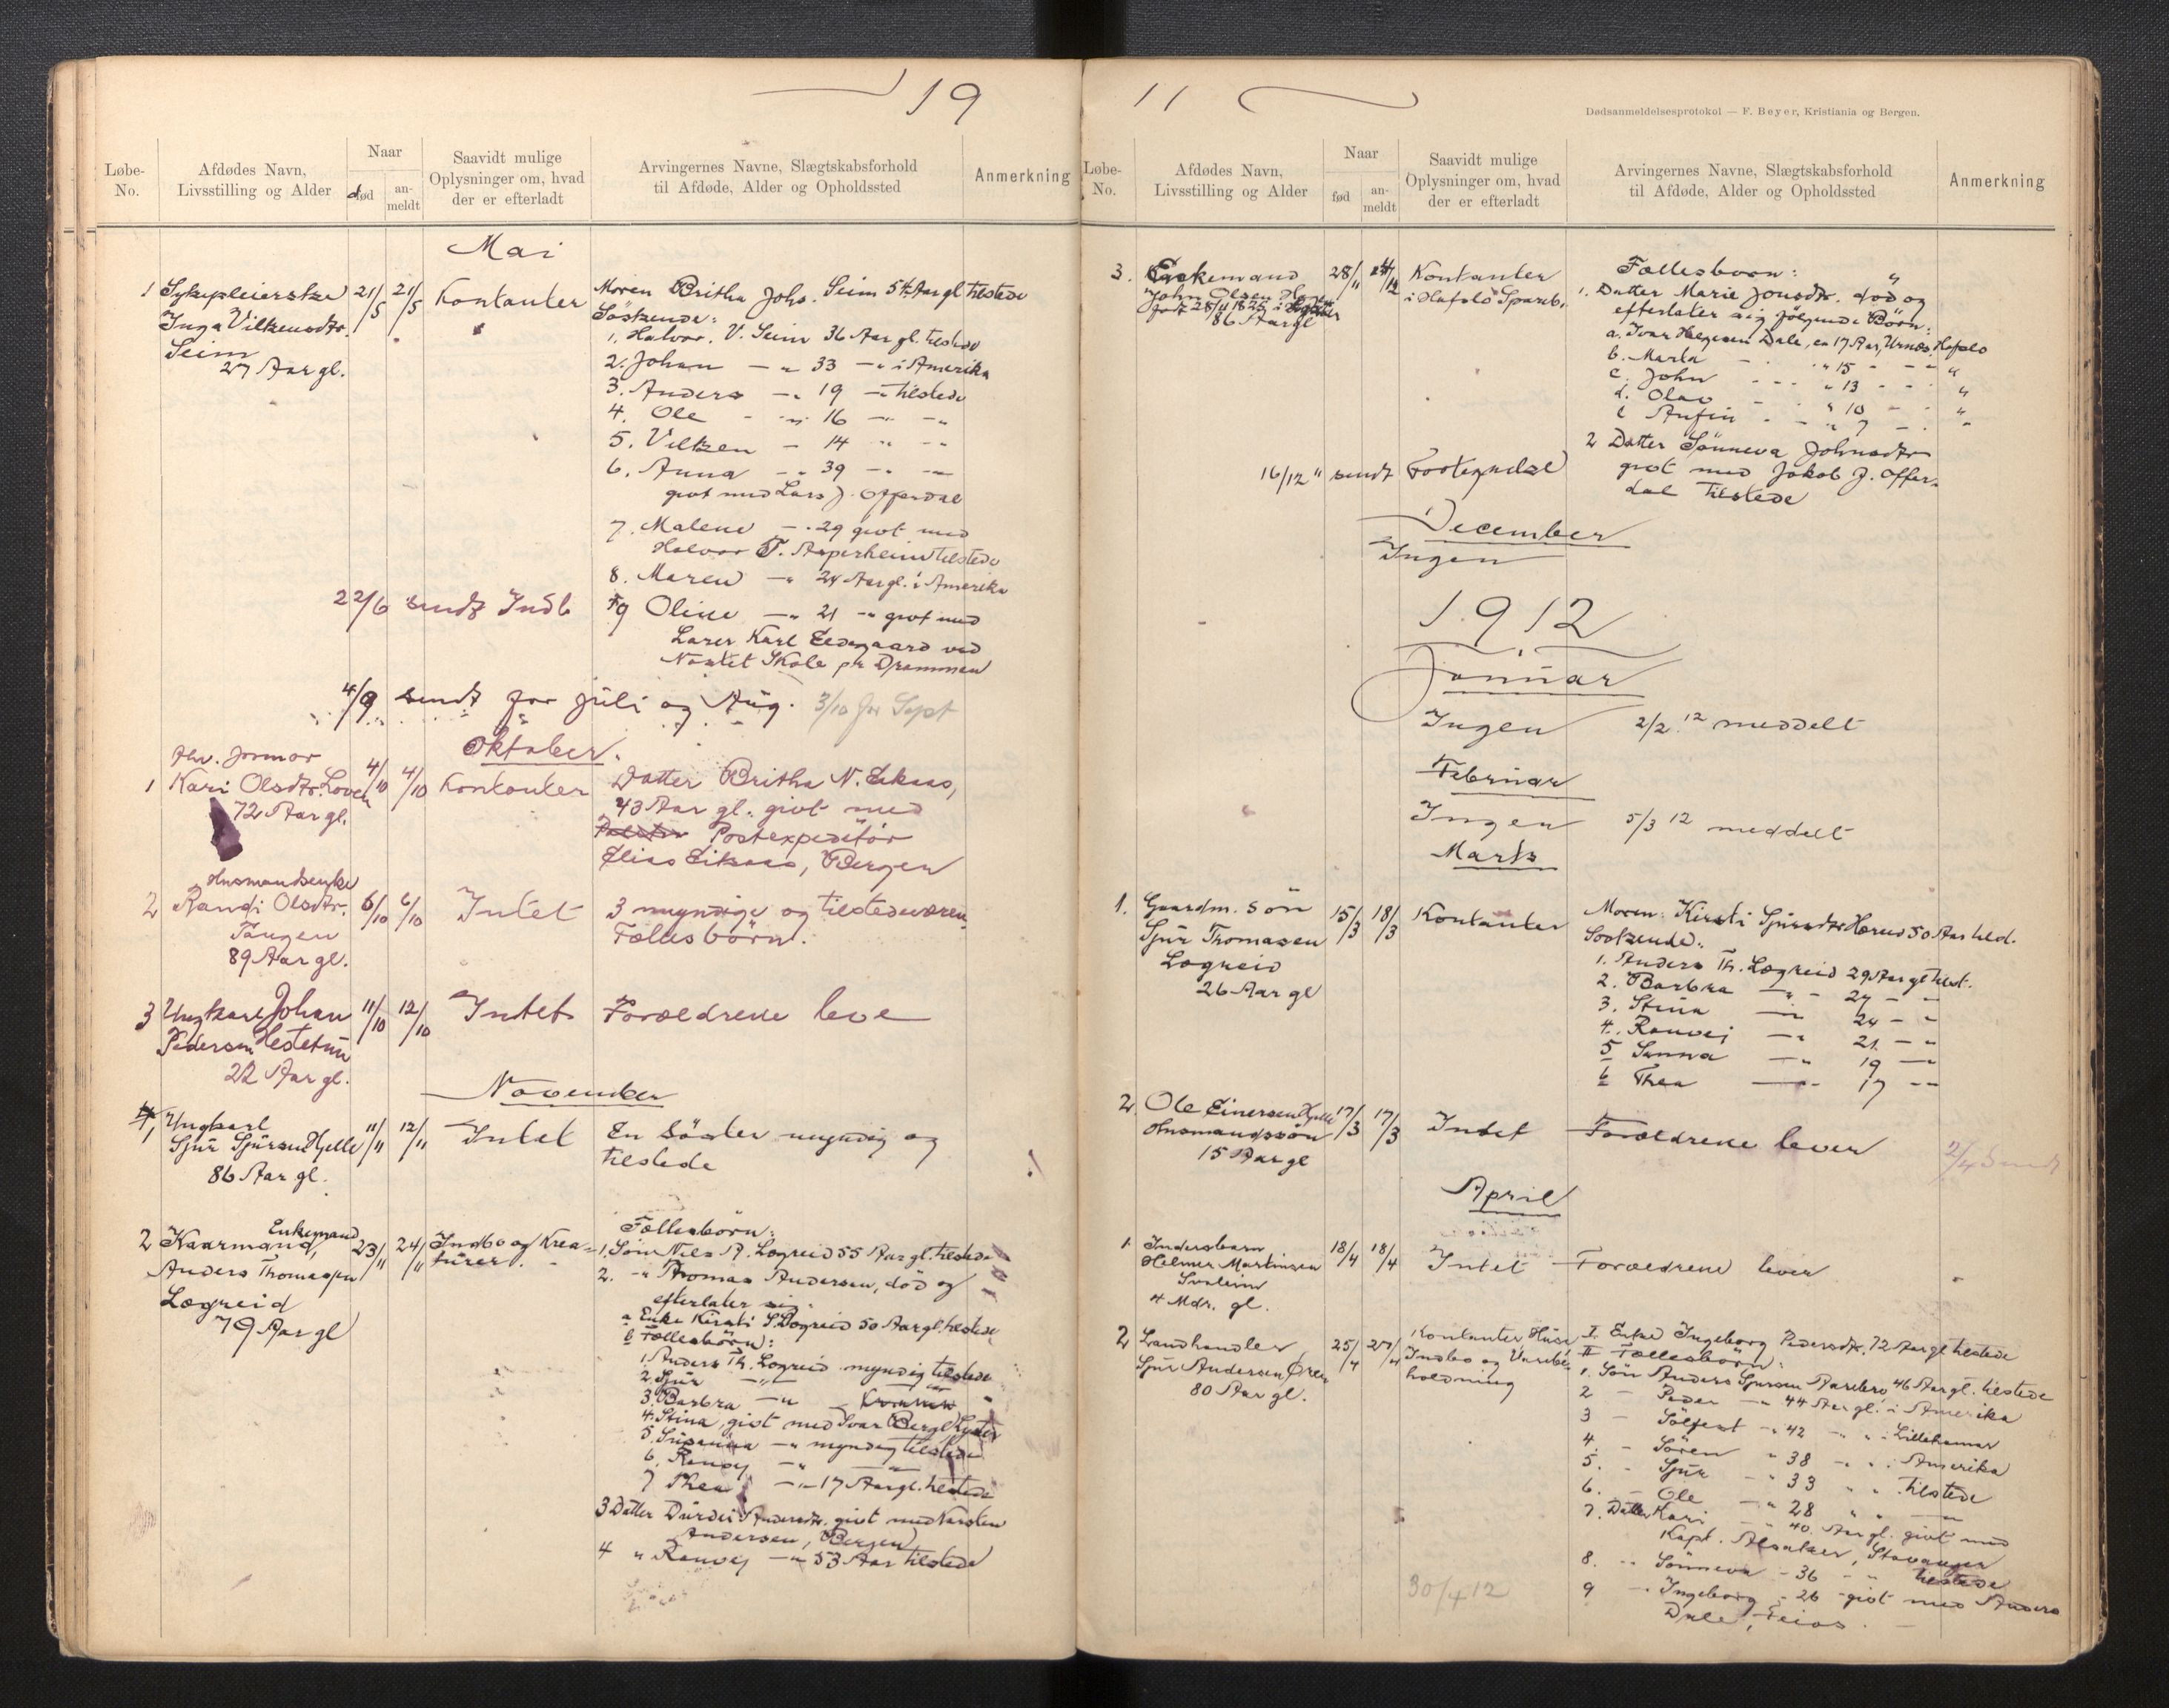 19
Løbe-
No.
Afdødes Navn,
Livsstilling og Alder
Naar
død
an-
meldt
Saavidt mulige
Oplysninger om, hvad
der er efterladt
Arvingernes Navne, Slægtskabsforhold
til Afdøde, Alder og Opholdssted
Anmerkning
Mai
1 Sykepleierske 21/5 21/5 Kontanter
Inga Vilkensdtr.
Seim
27 Aar gl.
Moren Britha Johs. Seim Aar gl tilstede
Söskende:
1, Halvor. V. Seim 36 Aar gl. tilstede
2. Johan — " 33 — " i Amerika
3. Anders — " 19 — " tilstede
4. Ole - " 16 — " — "
5. Vilken — 14 " — "
6. Anna — " 39 — " —
givt med Lars J. Offerdal
7. Malene — " 29 givt med
Halvor T. Asperheim tilstede
8. Maren — " 24 Aar gl. i Amerika
9 Oline — " 21 — " givt med
Lærer Karl Eedegaard ved
Skole pr Drammen
22/6 sendt Indb
4/9 sendt for juli og Aug. 3/10 for Sept
Oktober.
fhv. Jormor
1 Kari Olsdtr. Loven 4/10 4/10 Kontanter
72 Aar gl.
Datter Britha N. Eikaas,
43 Aar gl. givt med
Postexpeditör
Elias Eikaas, Bergen
Husmandsenke
2 Randi Olsdtr. 6/10 6/10 Intet
Tangen
89 Aar gl.
3 myndige og tilstedeværen.
Fællesbörn.
3 Ungkarl Johan 11/10 12/10 Intet Forældrene leve
Pedersen Hestetun
22 Aar gl.
November
1 Ungkarl
Sjur Sjursen Hjelle 11/11 12/11 Intet En Söster myndig og
86 Aar gl. tilstede
Enkemand
2 Kaarmand, 23/11 24/11 Indbo og Krea-
Anders Thomassen turer.
Lægreid
79 Aar gl
Fællesbörn:
1. Sön Nils A. Lægreid 55 Aar gl. tilstede
2. — " Thomas Andersen, död og
efterlater sig:
a Enke Kirsti S. Lægreid 50 Aar gl. tilstede
b Fællesbörn:
1. Anders Th. Lægreid myndig tilstede
2. Sjur — " —
3. Barbra — "
4. Stina, givt med Ivar Berge Lyster
5. Susanna — " myndig tilstede
6. Ranvei — "
7 Thea — " — 17 Aar gl. tilstede
3 Datter Durdei Andersdtr. givt med Karsten
Andersen, Bergen
4 " Ranvei — " 53 Aar tilstede
11
Dødsanmeldelsesprotokol — F. Beyer, Kristiania og Bergen.
Løbe-
No.
Afdødes Navn,
Livsstilling og Alder
Naar
fød
an-
meldt
Saavidt mulige
Oplysninger om, hvad
der er efterladt
Arvingernes Navne, Slægtskabsforhold
til Afdøde, Alder og Opholdssted
Anmerkning
3. Enkemand 28/11 Kontanter
John Olsen i Hafslo Spareb.
født 28/4 1825 i
86 Aar gl
Fællesbörn:
1. Datter Marie Jonsdtr. död og
efterlater sig følgende Börn:
a. Ivar Helgesen Dale, ca 17 Aar, Urnes, Hafslo
b. Marta - " 15 - - "
c. John - - " 13 - - "
d. Olav - " 10 - - "
e Anfin - " 7 - - "
2 Datter Sönneva Johnsdtr
givt med Jakob J. Offer-
dal tilstede
16/12 11 sendt
December
Ingen
1912
Januar
Ingen 2/2 12 meddelt
Februar
Ingen 5/3 12 meddelt
Marts
1. Gaardm. sön 15/3 18/3 Kontanter
Sjur Thomasen
Lægreid
26 Aar gl
Moren: Kirsti Sjursdtr. 50 Aar tilst.
Söskende:
1. Anders Th. Lægreid 29 Aar gl tilst.
2. Barbra — " - 27 - "
3. Stina — " 24 - "
4. Ranvei — " 21 - "
5 Sanna — " 19 — "
6 Thea — " 17 - "
2. Ole Einersen Hjelle 17/3 17/3 Intet Forældrene lever 2/4 Sendt
Husmandssön
15 Aar gl
April
1. Indersbarn 18/4 18/4 Intet Forældrene lever
Helmer Martinsen
Svoleim
4 Mdr. gl.
2 Landhandler 25/4 27/4 Kontanter Huse
Sjur Andersen Øren Indbo og Varebe-
80 Aar gl. holdning
I. Enke Ingeborg Pedersdtr. 72 Aar gl tilstede
II Fællesbörn:
1. Sön Anders Sjursen Aarebro, 46 Aar gl. tilstede
2 — Peder — " 44 Aar gl. i Amerika
3 — Sölfest — " 42 — " " Lillehamar
4. — Sören " 38 — " i Amerika
5. - Sjur - " 33 " " tilstede
6. — Ole — " 28 " " —
7. Datter Kari — " 40 Aar gl. givt med
Kapt. Alsaker, Stavanger
8. " Sönneva - 36 - " tilstede
9 — " Ingeborg - 26 - givt med Anders
Dale, Feios.
30/4 12